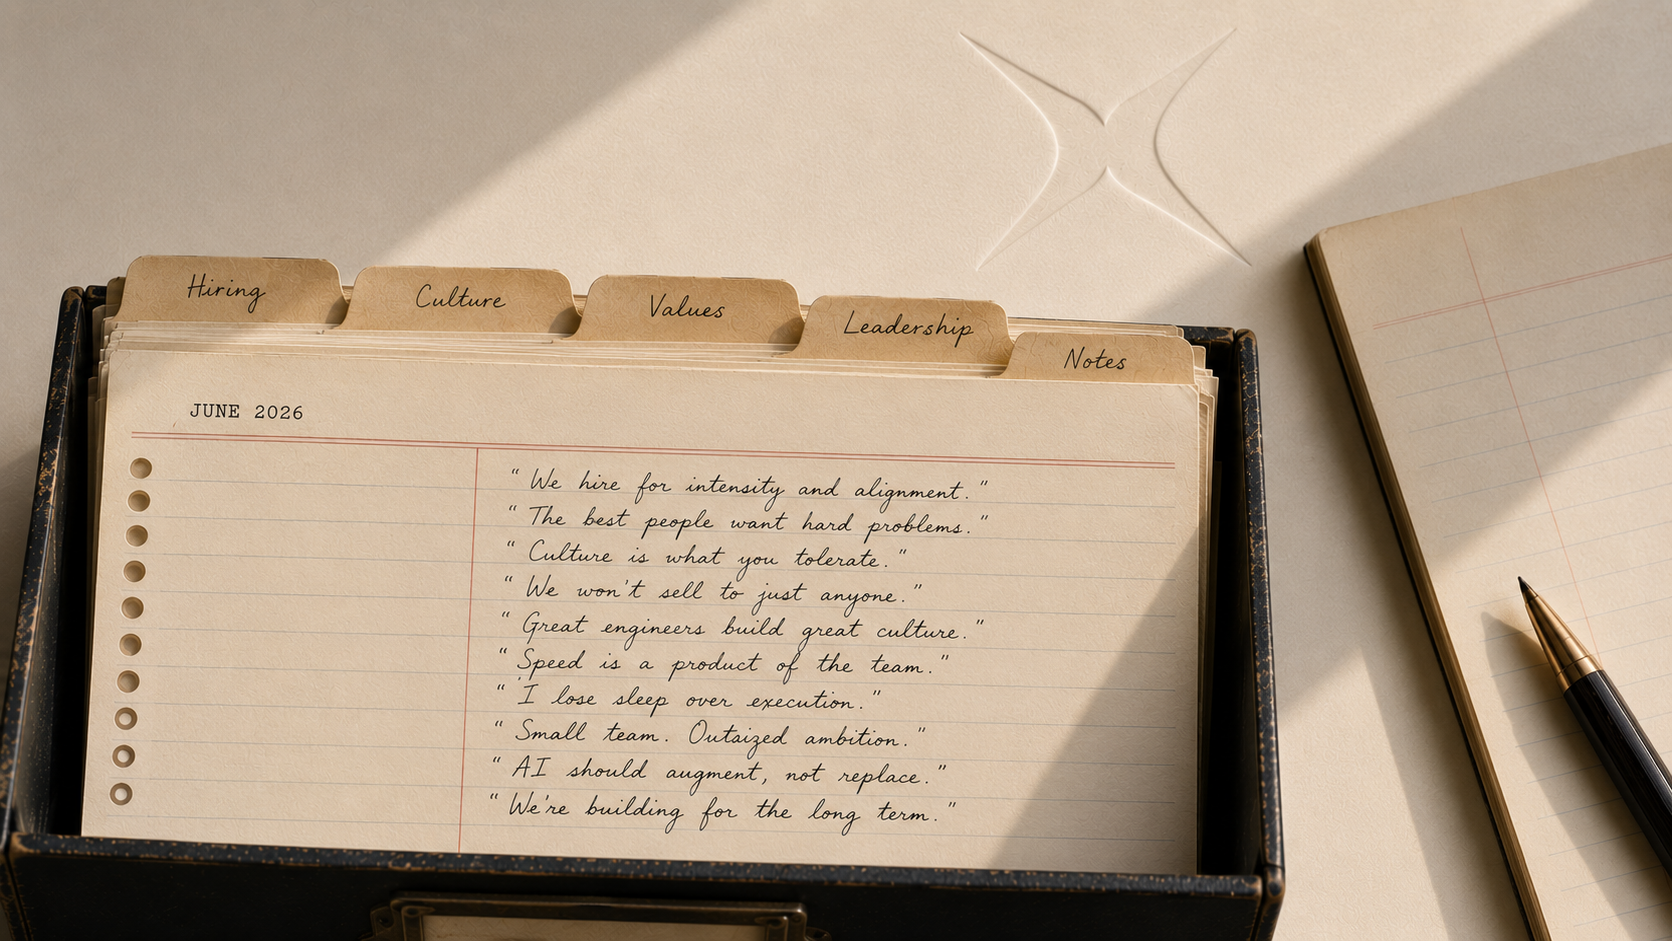 Hiring
Culture
Values
Leadership
Notes
JUNE 2026
"We hire for intensity and alignment."
"The best people want hard problems."
"Culture is what you tolerate."
"We won't sell to just anyone."
"Great engineers build great culture."
"Speed is a product of the team."
"I lose sleep over execution."
"Small team. Outsized ambition."
"AI should augment, not replace."
"We're building for the long term."